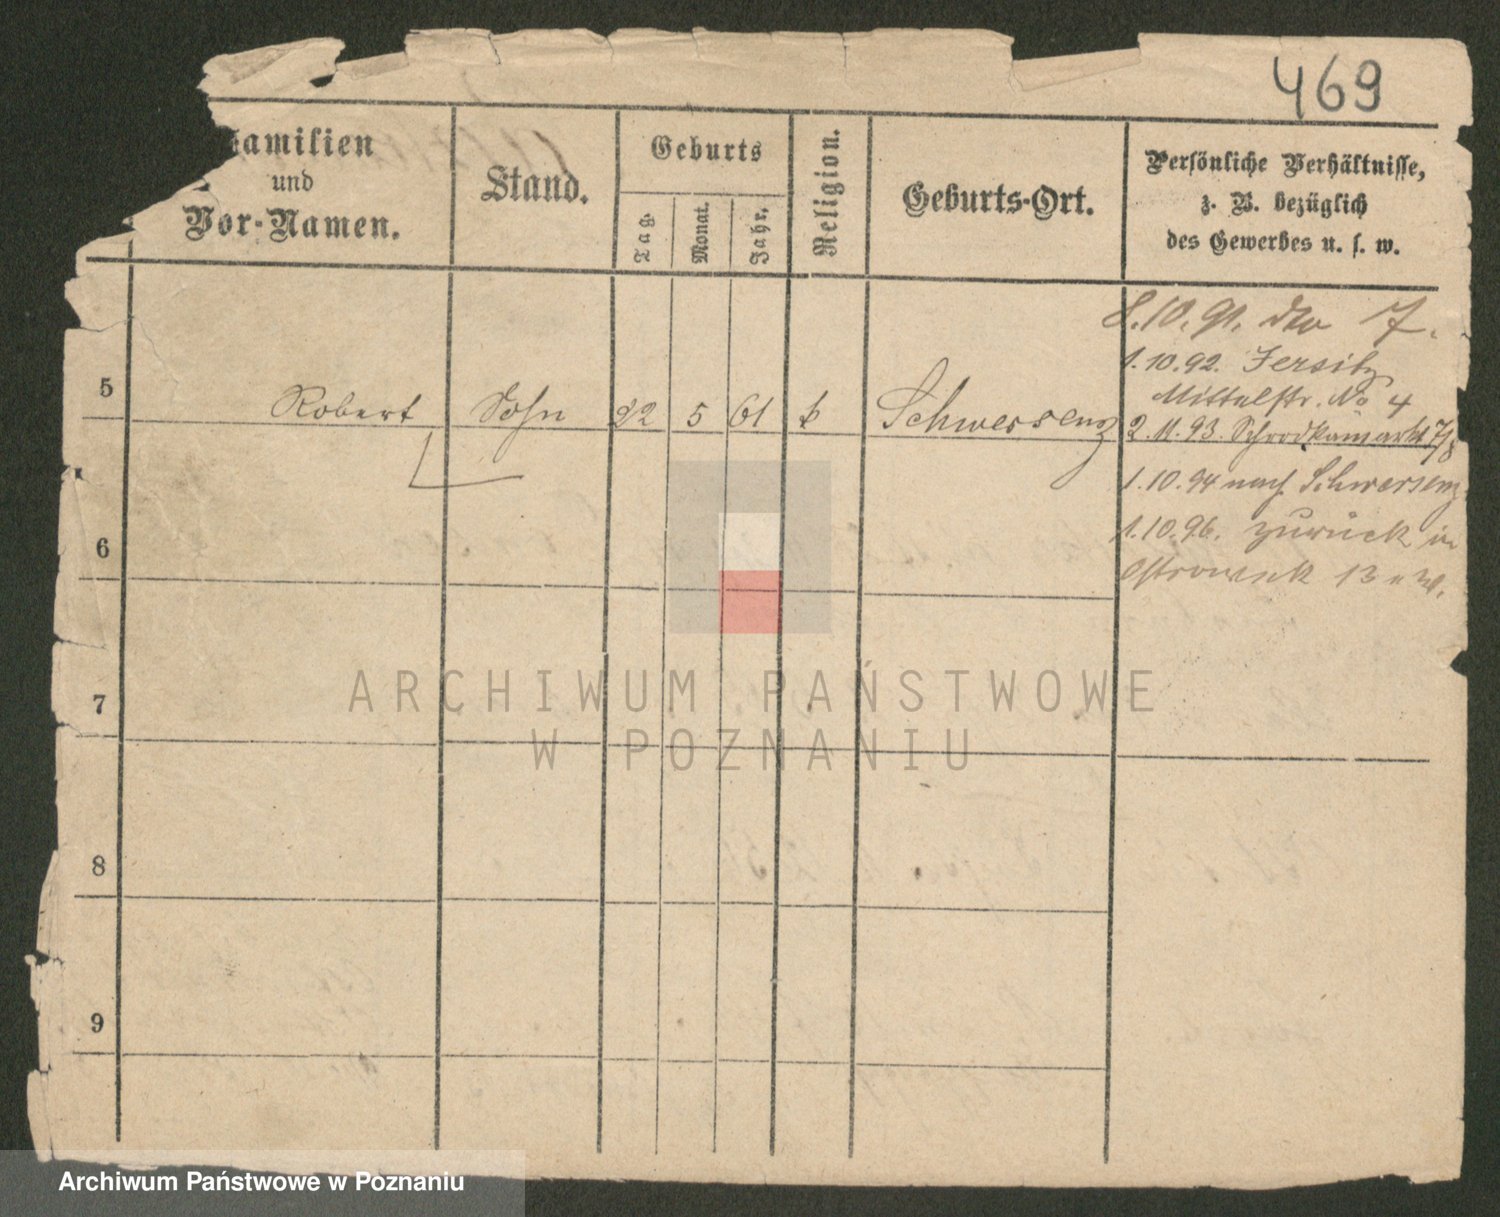 469
Familien
und
Vor-Namen.
Stand.
Geburts
Tag.
Monat.
Jahr.
Religion.
Geburts-Ort.
Persönliche Verhältnisse,
z. B. bezüglich
des Gewerbes u. s. w.
8.10.91. dto 7.
1.10.92. Jersitz
Mittelstr. No 4
5 Robert Sohn 22 5 61 k Schwersenz
2.11.93. Schrodkamarkt 7/8
1.10.94 nach Schwersenz
6
1.10.96. zurück in
Ostrowek 13
7
8
9
ARCHIWUM PAŃSTWOWE
W POZNANIU
Archiwum Państwowe w Poznaniu